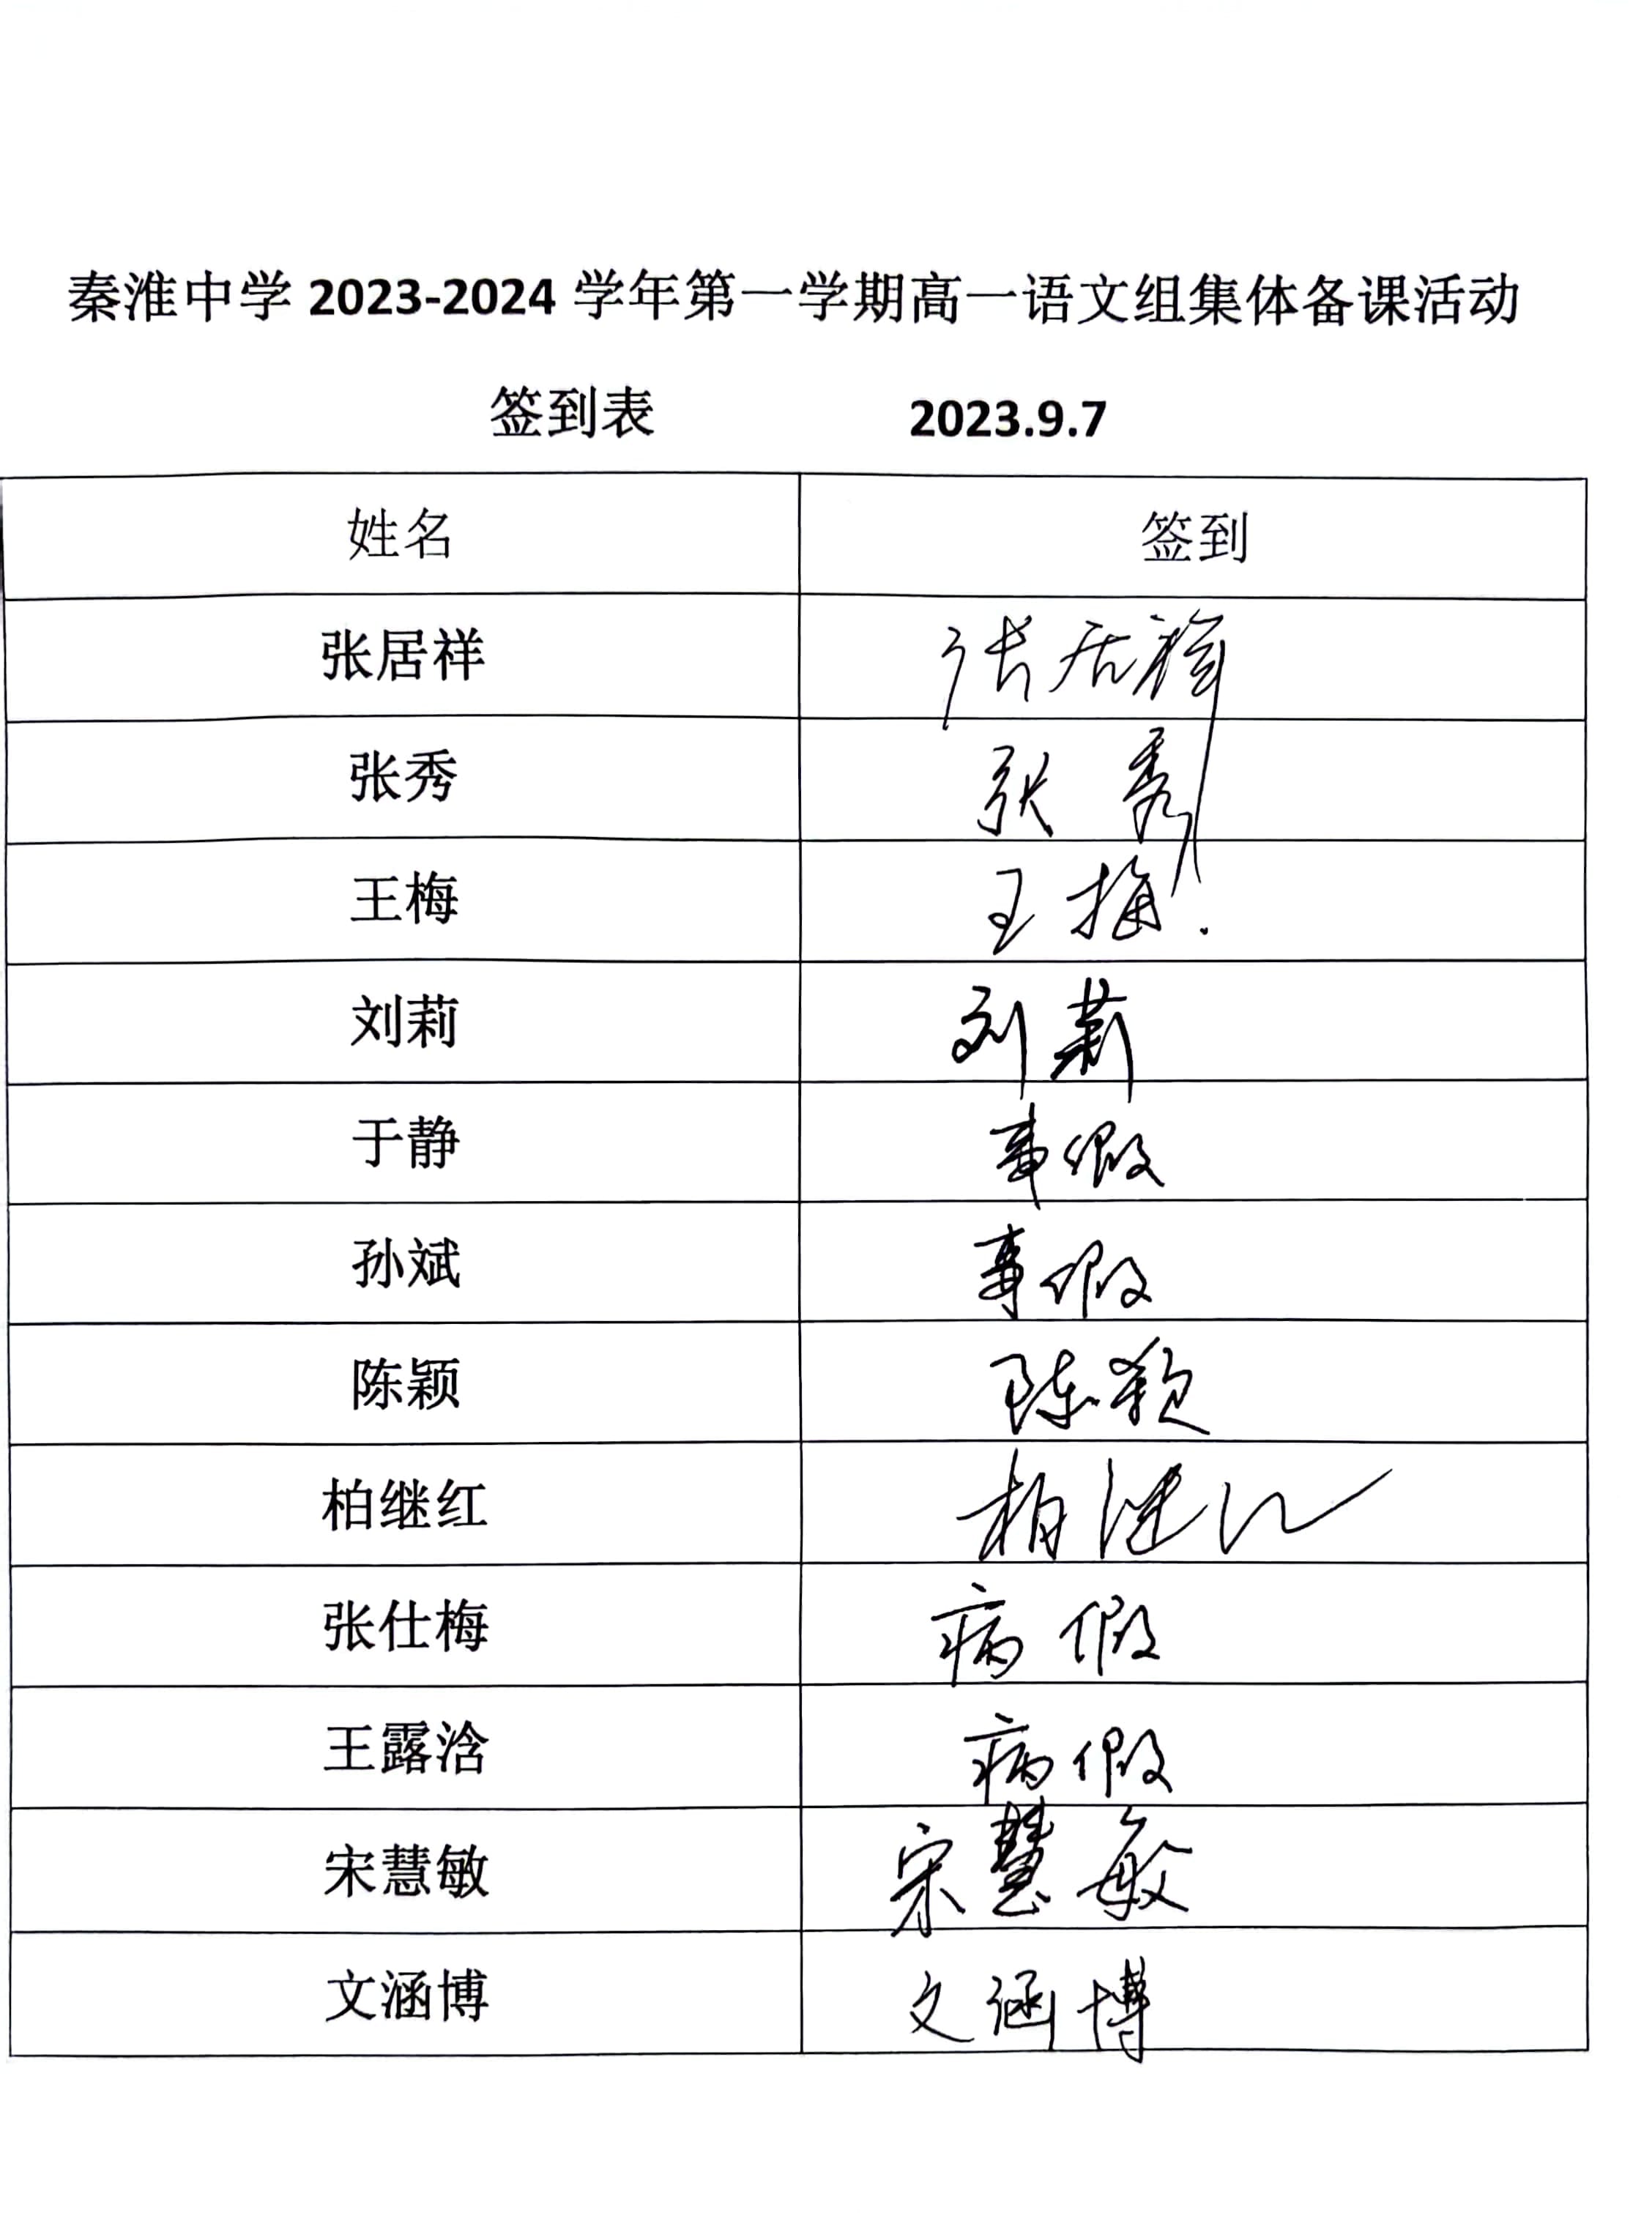 秦淮中学 2023-2024 学年第一学期高一语文组集体备课活动
签到表 2023.9.7
姓名 签到
张居祥 张居祥
张秀 张秀
王梅 王梅.
刘莉 刘莉
于静 事假
孙斌 事假
陈颖 陈颖
柏继红 柏继红
张仕梅 病假
王露浛 病假
宋慧敏 宋慧敏
文涵博 文涵博